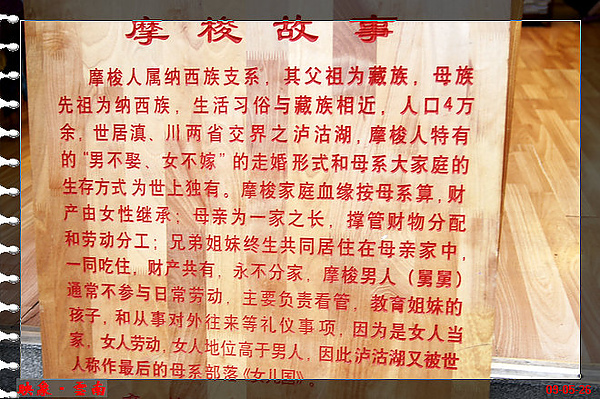 摩梭故事
摩梭人属纳西族支系，其父祖为藏族，母族
先祖为纳西族，生活习俗与藏族相近，人口4万
余，世居滇、川两省交界之泸沽湖，摩梭人特有
的“男不娶、女不嫁”的走婚形式和母系大家庭的
生存方式为世上独有。摩梭家庭血缘按母系算，财
产由女性继承；母亲为一家之长，撑管财物分配
和劳动分工；兄弟姐妹终生共同居住在母亲家中，
一同吃住，财产共有，永不分家，摩梭男人（舅舅）
通常不参与日常劳动，主要负责看管，教育姐妹的
孩子，和从事对外往来等礼仪事项，因为是女人当
家，女人劳动，女人地位高于男人，因此泸沽湖又被世
人称作最后的母系部落《女儿国》。
映象·云南